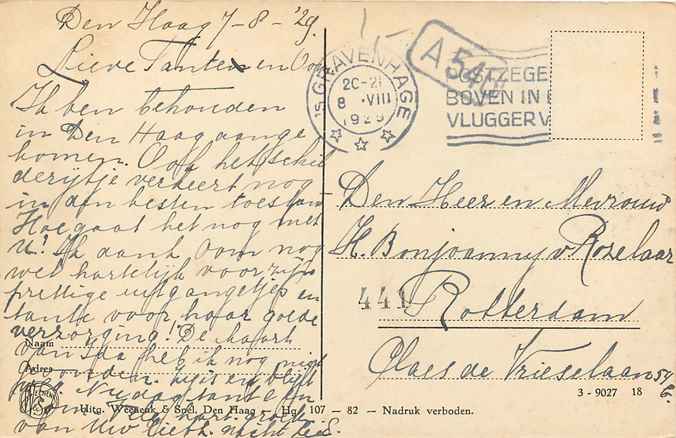 Den Haag 7-8-'29.
Lieve Tante en Oom
Ik ben behouden
in Den Haag aange
komen. Ook het schil
derijtje verkeert nog
in den besten toestand
Hoe gaat het nog met
U? Ik dank Oom nog
wel hartelijk voor zijn
prettige uitgangetjes en
tante voor haar goede
verzorging! De kaart
van heb ik nog niet
gevonden. en blijft
weg. Nu dag tante en
oom. Veel
van Uw liefh. nichtje
'S-GRAVENHAGE
20-21
8 VIII
1929
A 54
POSTZEGE
BOVEN IN
VLUGGER V
Den Heer en Mevrouw
H. Bonjoanny v Rozelaar
441
Rotterdam
Claes de Vrieselaan 59
b.
Naam
Adres
3 - 9027 18
Uitg. Weenenk & Snel, Den Haag — Hg 107 - 82 — Nadruk verboden.